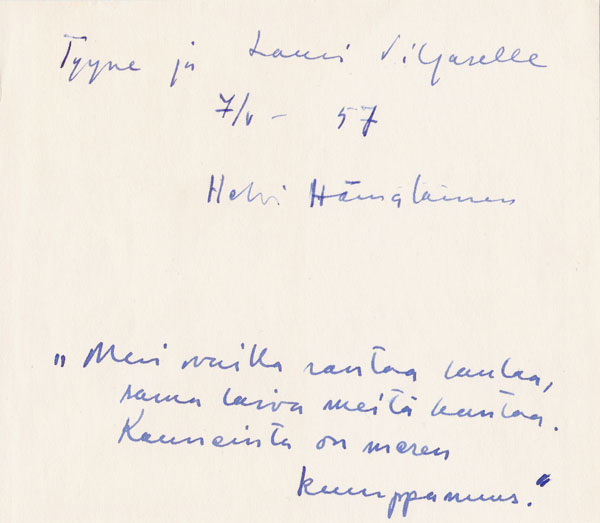 Tyyne ja Lauri Viljaselle
7/V – 57
Helvi Hämäläinen
„Meri vailla rantaa lantaa,
sama laiva meitä kantaa.
Kauneinta on meren
kumppanuus."